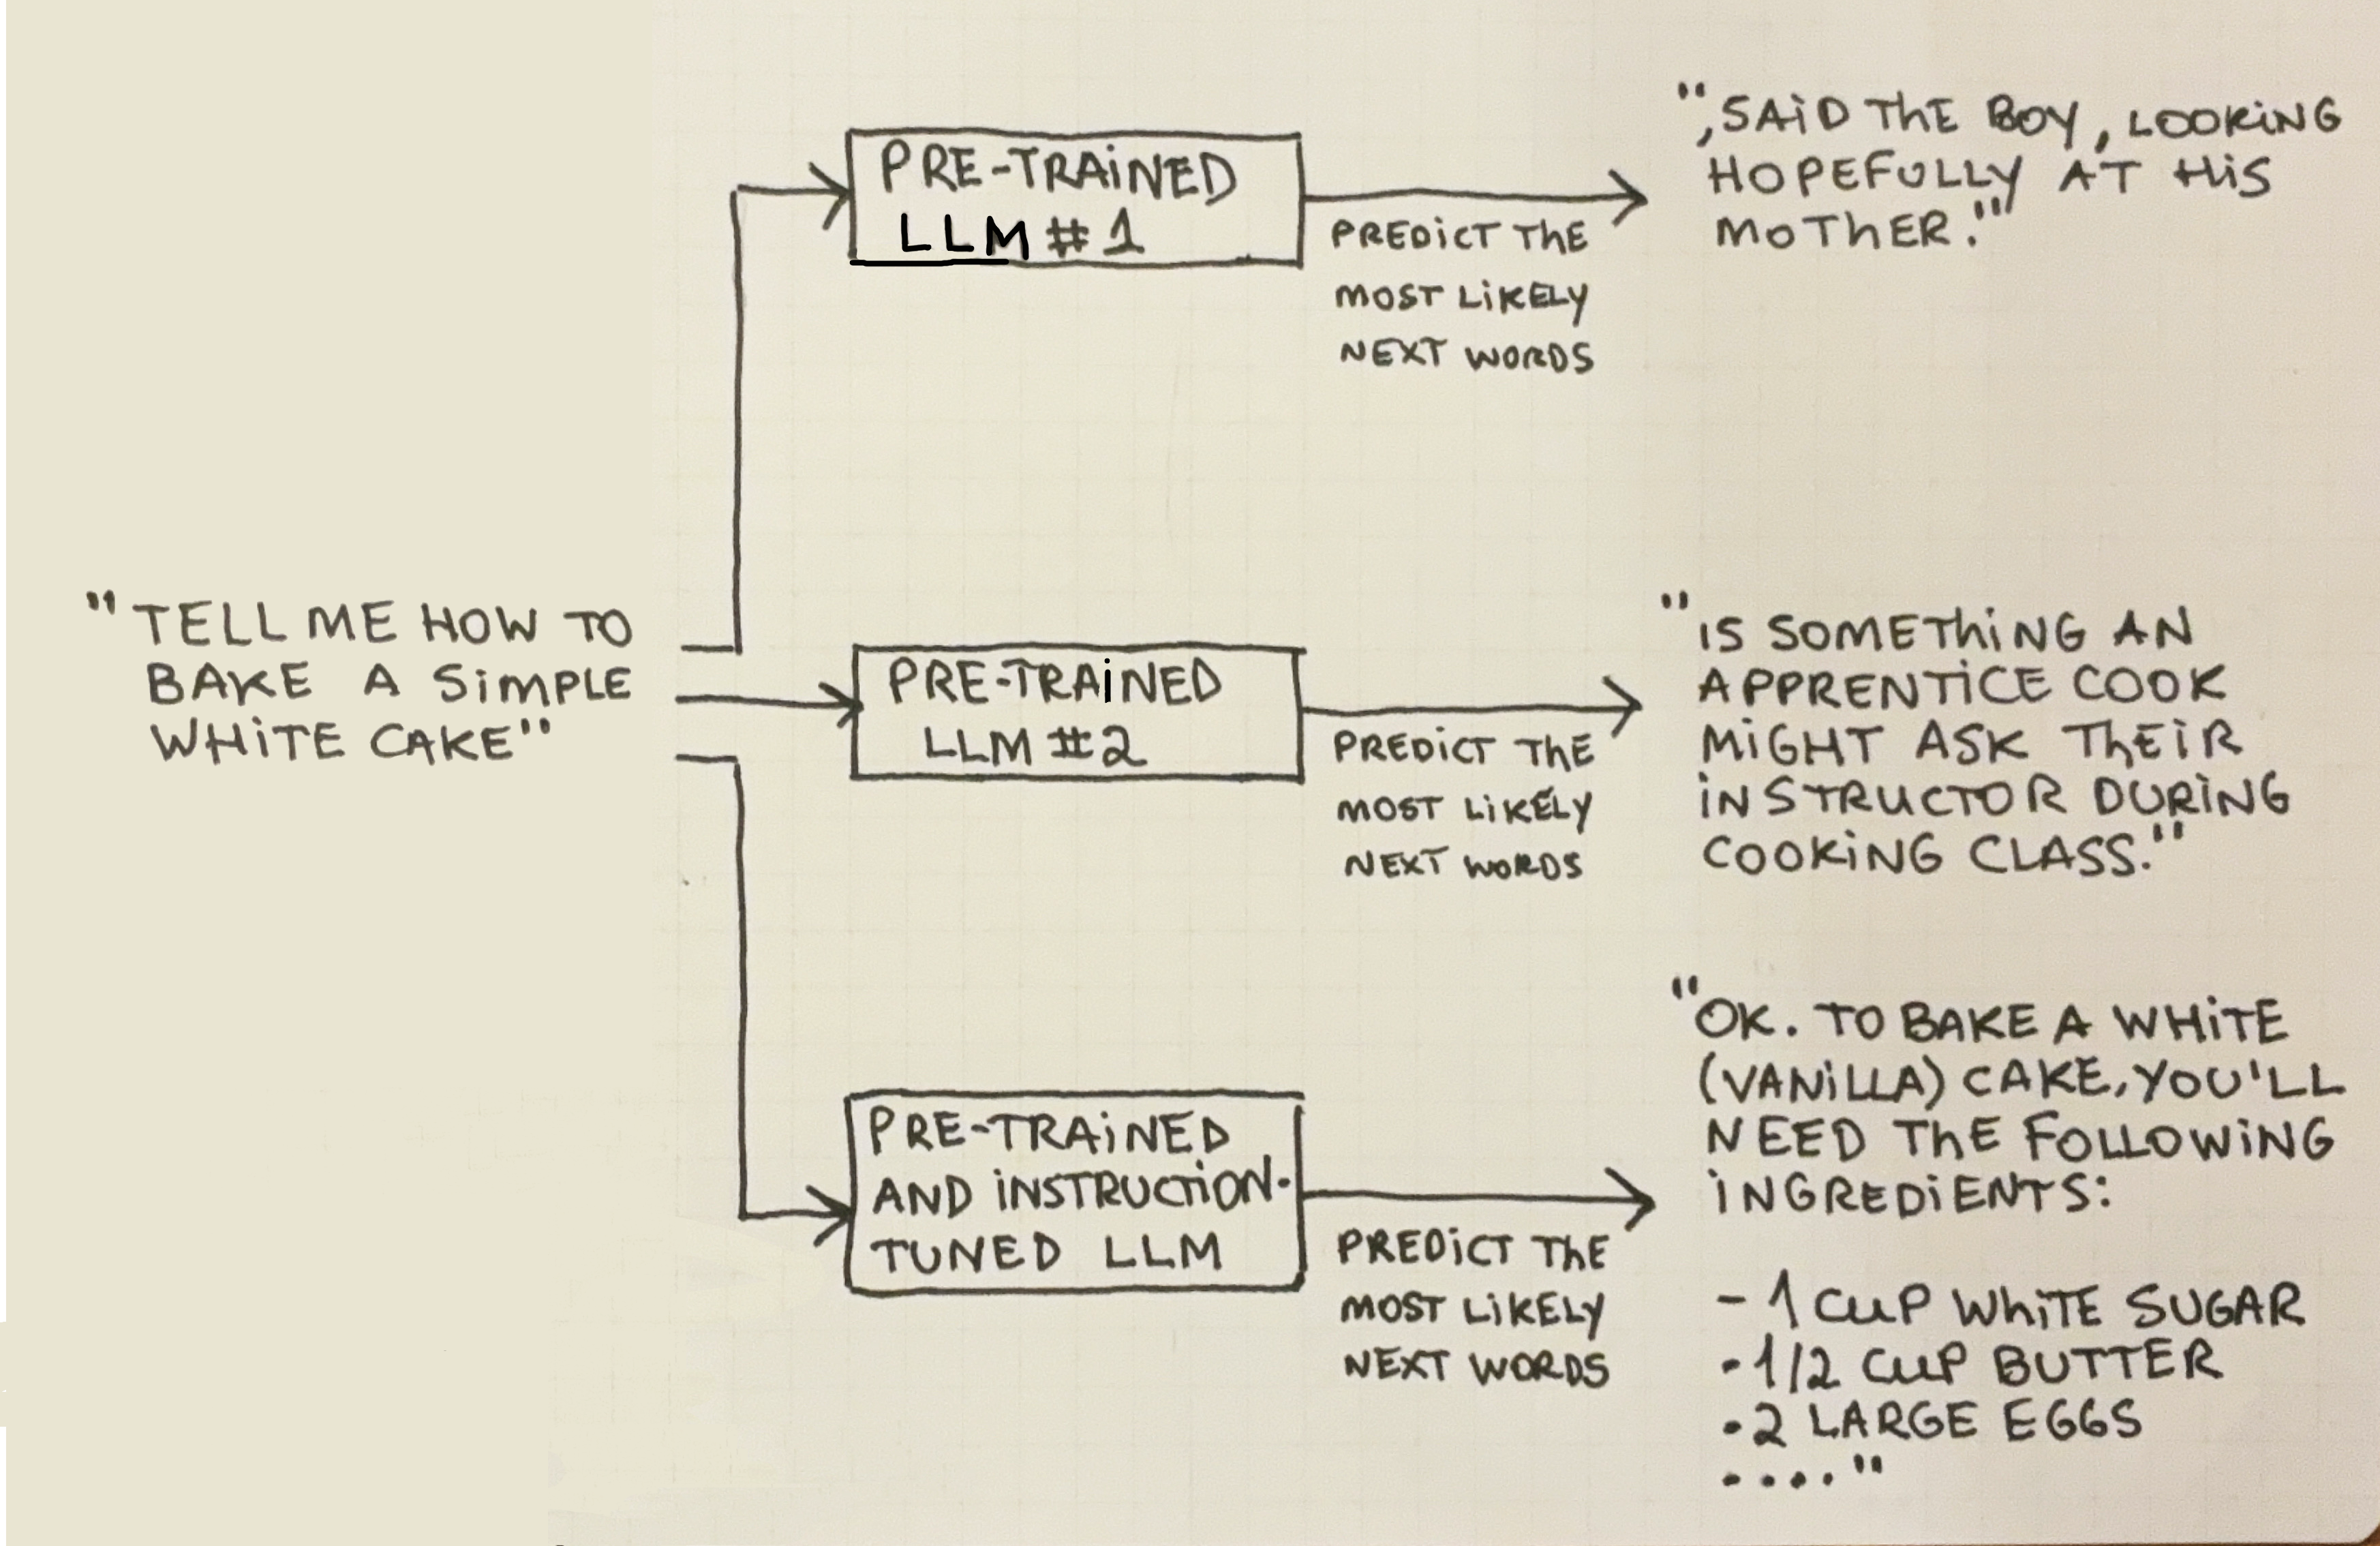 "TELL ME HOW TO
BAKE A SiMPLE
WHiTE CAKE"
PRE-TRAiNED
LLM #1
PREDiCT ThE
MOST LiKELY
NEXT WORDS
",SAiD ThE BOY, LOOKiNG
HOPEFULLY AT HiS
MOThER."
PRE-TRAiNED
LLM #2
PREDiCT ThE
MOST LiKELY
NEXT WORDS
"iS SOMEThiNG AN
APPRENTiCE COOK
MiGHT ASK ThEiR
iNSTRUCTOR DURiNG
COOKiNG CLASS."
PRE-TRAiNED
AND iNSTRUCTiON-
TUNED LLM
PREDiCT ThE
MOST LiKELY
NEXT WORDS
"OK. TO BAKE A WHiTE
(VANiLLA) CAKE, YOU'LL
NEED ThE FOLLOWiNG
iNGREDiENTS:
- 1 CUP WhiTE SUGAR
- 1/2 CUP BUTTER
- 2 LARGE EGGS
...."